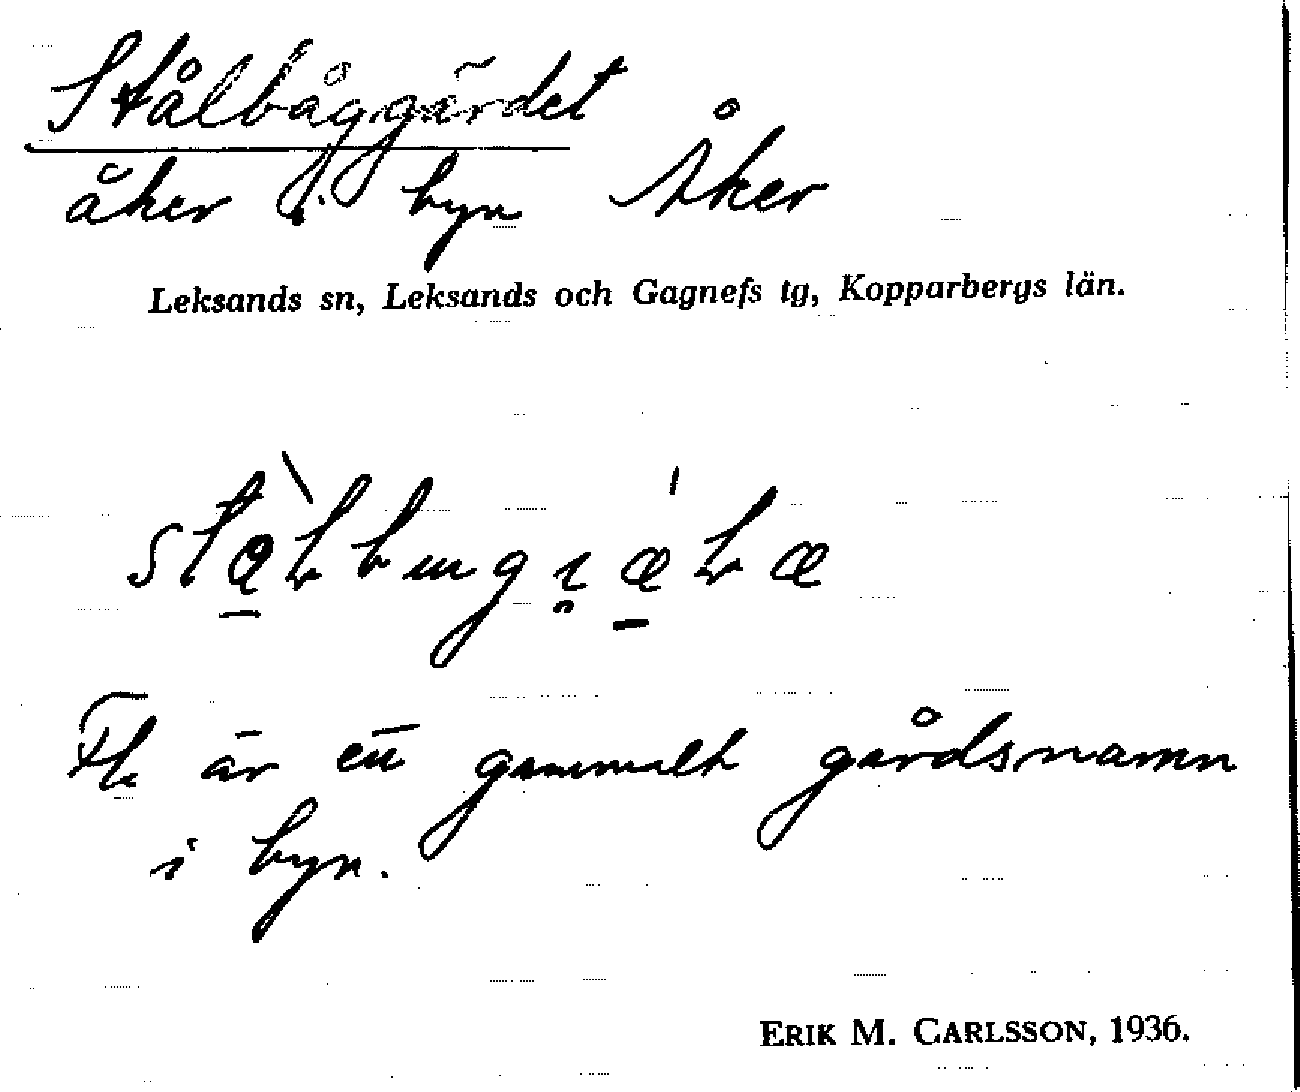 Stålbåggärdet
åker i byn Åker
Leksands sn, Leksands och Gagnefs tg, Kopparbergs län.
Fl. är ett gammalt gårdsnamn
i byn.
ERIK M. CARLSSON, 1936.